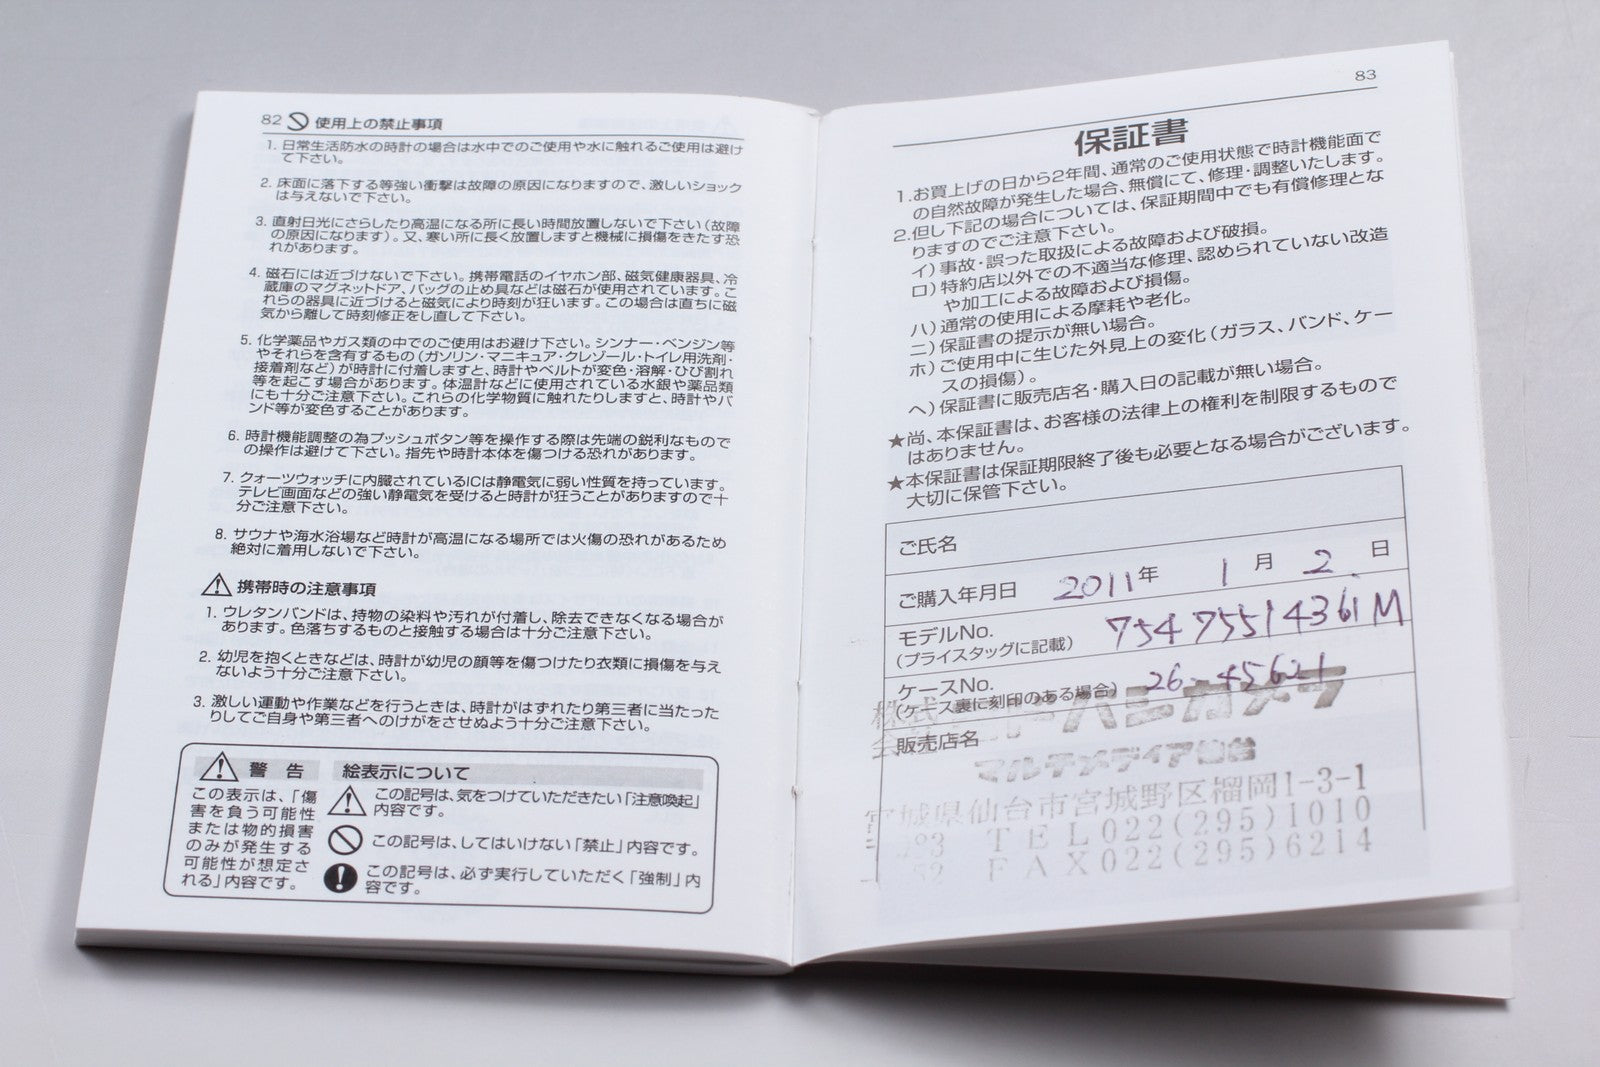 82 使用上の禁止事項
1. 日常生活防水の時計の場合は水中でのご使用や水に触れるご使用は避け
て下さい。
2. 床面に落下する等強い衝撃は故障の原因になりますので、激しいショック
は与えないで下さい。
3. 直射日光にさらしたり高温になる所に長い時間放置しないで下さい（故障
の原因になります）。又、寒い所に長く放置しますと機械に損傷をきたす恐
れがあります。
4. 磁石には近づけないで下さい。携帯電話のイヤホン部、磁気健康器具、冷
蔵庫のマグネットドア、バッグの止め具などは磁石が使用されています。こ
れらの器具に近づけると磁気により時刻が狂います。この場合は直ちに磁
気から離して時刻修正をし直して下さい。
5. 化学薬品やガス類の中でのご使用はお避け下さい。シンナー・ベンジン等
やそれらを含有するもの（ガソリン・マニキュア・クレゾール・トイレ用洗剤・
接着剤など）が時計に付着しますと、時計やベルトが変色・溶解・ひび割れ
等を起こす場合があります。体温計などに使用されている水銀や薬品類
にも十分ご注意下さい。これらの化学物質に触れたりしますと、時計やバ
ンド等が変色することがあります。
6. 時計機能調整の為プッシュボタン等を操作する際は先端の鋭利なもので
の操作は避けて下さい。指先や時計本体を傷つける恐れがあります。
7. クォーツウォッチに内臓されているICは静電気に弱い性質を持っています。
テレビ画面などの強い静電気を受けると時計が狂うことがありますので十
分ご注意下さい。
8. サウナや海水浴場など時計が高温になる場所では火傷の恐れがあるため
絶対に着用しないで下さい。
携帯時の注意事項
1. ウレタンバンドは、持物の染料や汚れが付着し、除去できなくなる場合が
あります。色落ちするものと接触する場合は十分ご注意下さい。
2. 幼児を抱くときなどは、時計が幼児の顔等を傷つけたり衣類に損傷を与え
ないよう十分ご注意下さい。
3. 激しい運動や作業などを行うときは、時計がはずれたり第三者に当たった
りしてご自身や第三者へのけがをさせぬよう十分ご注意下さい。
警告
この表示は、「傷
害を負う可能性
または物的損害
のみが発生する
可能性が想定さ
れる」内容です。
絵表示について
この記号は、気をつけていただきたい「注意喚起」
内容です。
この記号は、してはいけない「禁止」内容です。
この記号は、必ず実行していただく「強制」内
容です。
83
保証書
1.お買上げの日から2年間、通常のご使用状態で時計機能面で
の自然故障が発生した場合、無償にて、修理・調整いたします。
2.但し下記の場合については、保証期間中でも有償修理とな
りますのでご注意下さい。
イ）事故・誤った取扱による故障および破損。
ロ）特約店以外での不適当な修理、認められていない改造
や加工による故障および損傷。
ハ）通常の使用による摩耗や老化。
ニ）保証書の提示が無い場合。
ホ）ご使用中に生じた外見上の変化（ガラス、バンド、ケー
スの損傷）。
へ）保証書に販売店名・購入日の記載が無い場合。
★尚、本保証書は、お客様の法律上の権利を制限するもので
はありません。
★本保証書は保証期限終了後も必要となる場合がございます。
大切に保管下さい。
ご氏名
ご購入年月日 2011年 1月 2.日
モデルNo. 754 7551 4361M
(プライスタッグに記載)
ケースNo. 26-45621
(ケース裏に刻印のある場合)
株式会社 ヨドバシカメラ
販売店名
マルチメディア仙台
宮城県仙台市宮城野区榴岡1-3-1
TEL022(295)1010
FAX022(295)6214